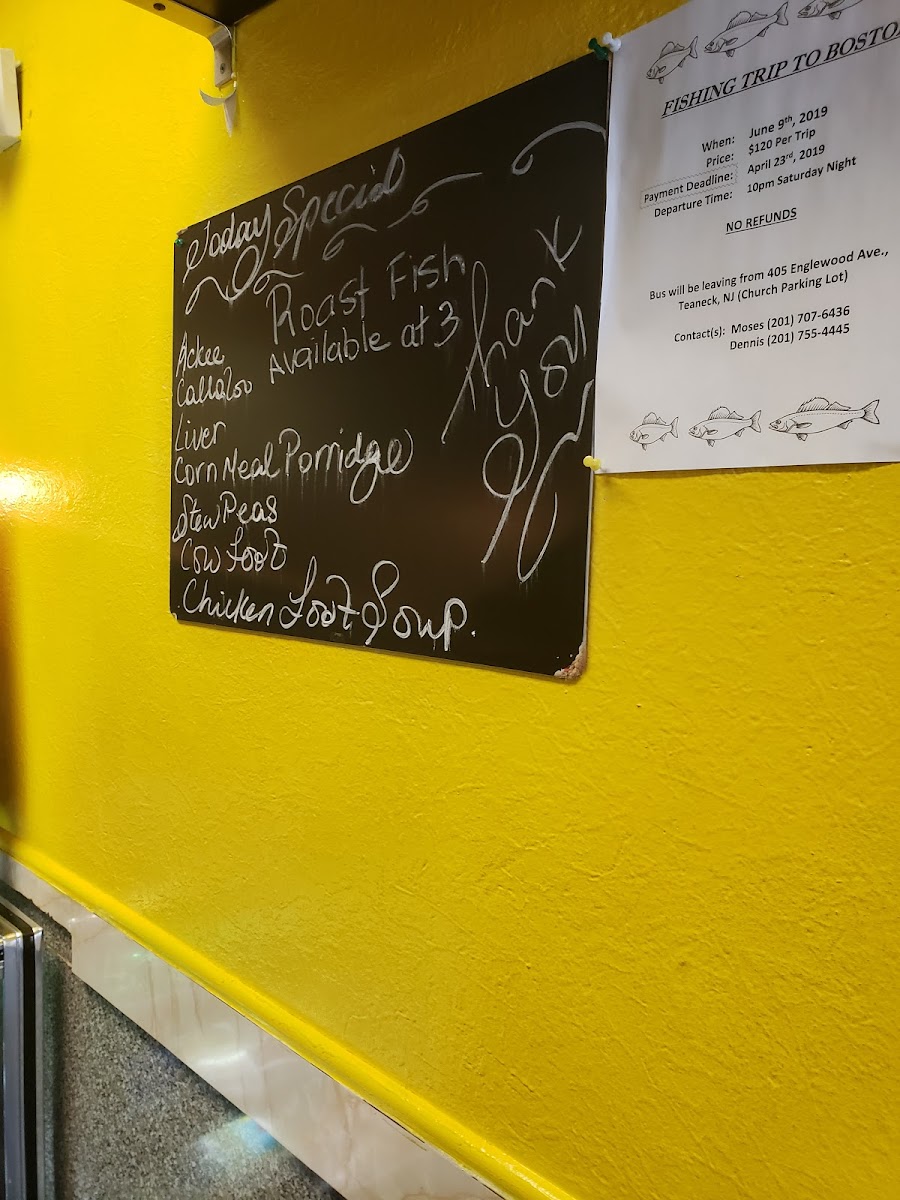 Today Special
Roast Fish
Available at 3
Ackee
Callaloo
Liver
Corn Meal Porridge
Stew Peas
Cow Foot
Chicken Foot Soup.
Thank
You
FISHING TRIP TO BOSTO
When: June 9th, 2019
Price: $120 Per Trip
Payment Deadline: April 23rd, 2019
Departure Time: 10pm Saturday Night
NO REFUNDS
Bus will be leaving from 405 Englewood Ave.,
Teaneck, NJ (Church Parking Lot)
Contact(s): Moses (201) 707-6436
Dennis (201) 755-4445